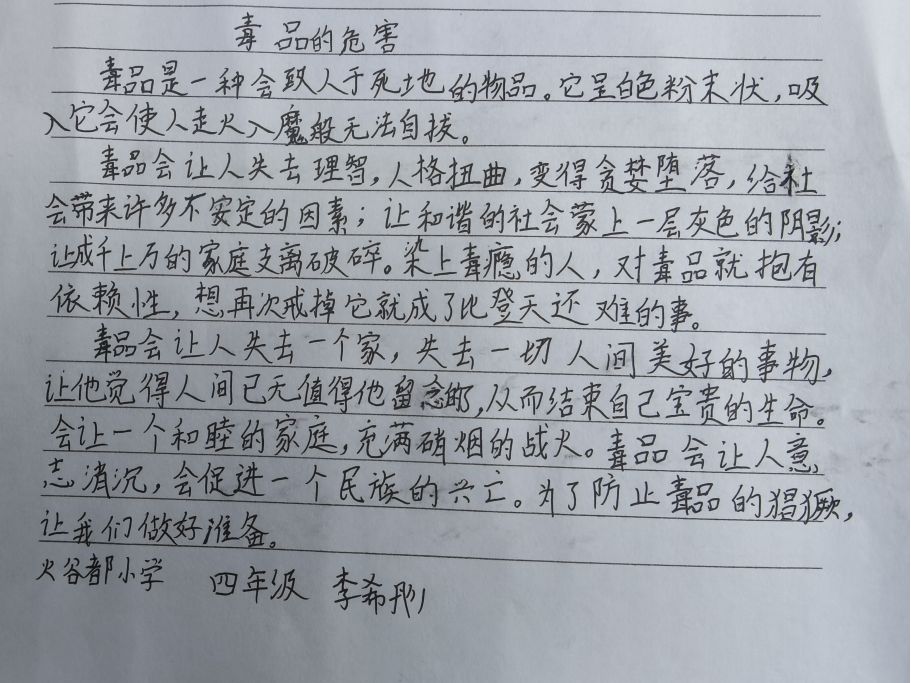 毒品的危害
毒品是一种会致人于死地的物品。它呈白色粉末状,吸
入它会使人走火入魔般无法自拔。
毒品会让人失去理智,人格扭曲,变得贪婪堕落,给社
会带来许多不安定的因素;让和谐的社会蒙上一层灰色的阴影;
让成千上万的家庭支离破碎。染上毒瘾的人,对毒品就抱有
依赖性,想再次戒掉它就成了比登天还难的事。
毒品会让人失去一个家,失去一切人间美好的事物,
让他觉得人间已无值得他留念的,从而结束自己宝贵的生命。
会让一个和睦的家庭,充满硝烟的战火。毒品会让人意
志消沉,会促进一个民族的兴亡。为了防止毒品的猖獗,
让我们做好准备。
火谷都小学 四年级 李希彤